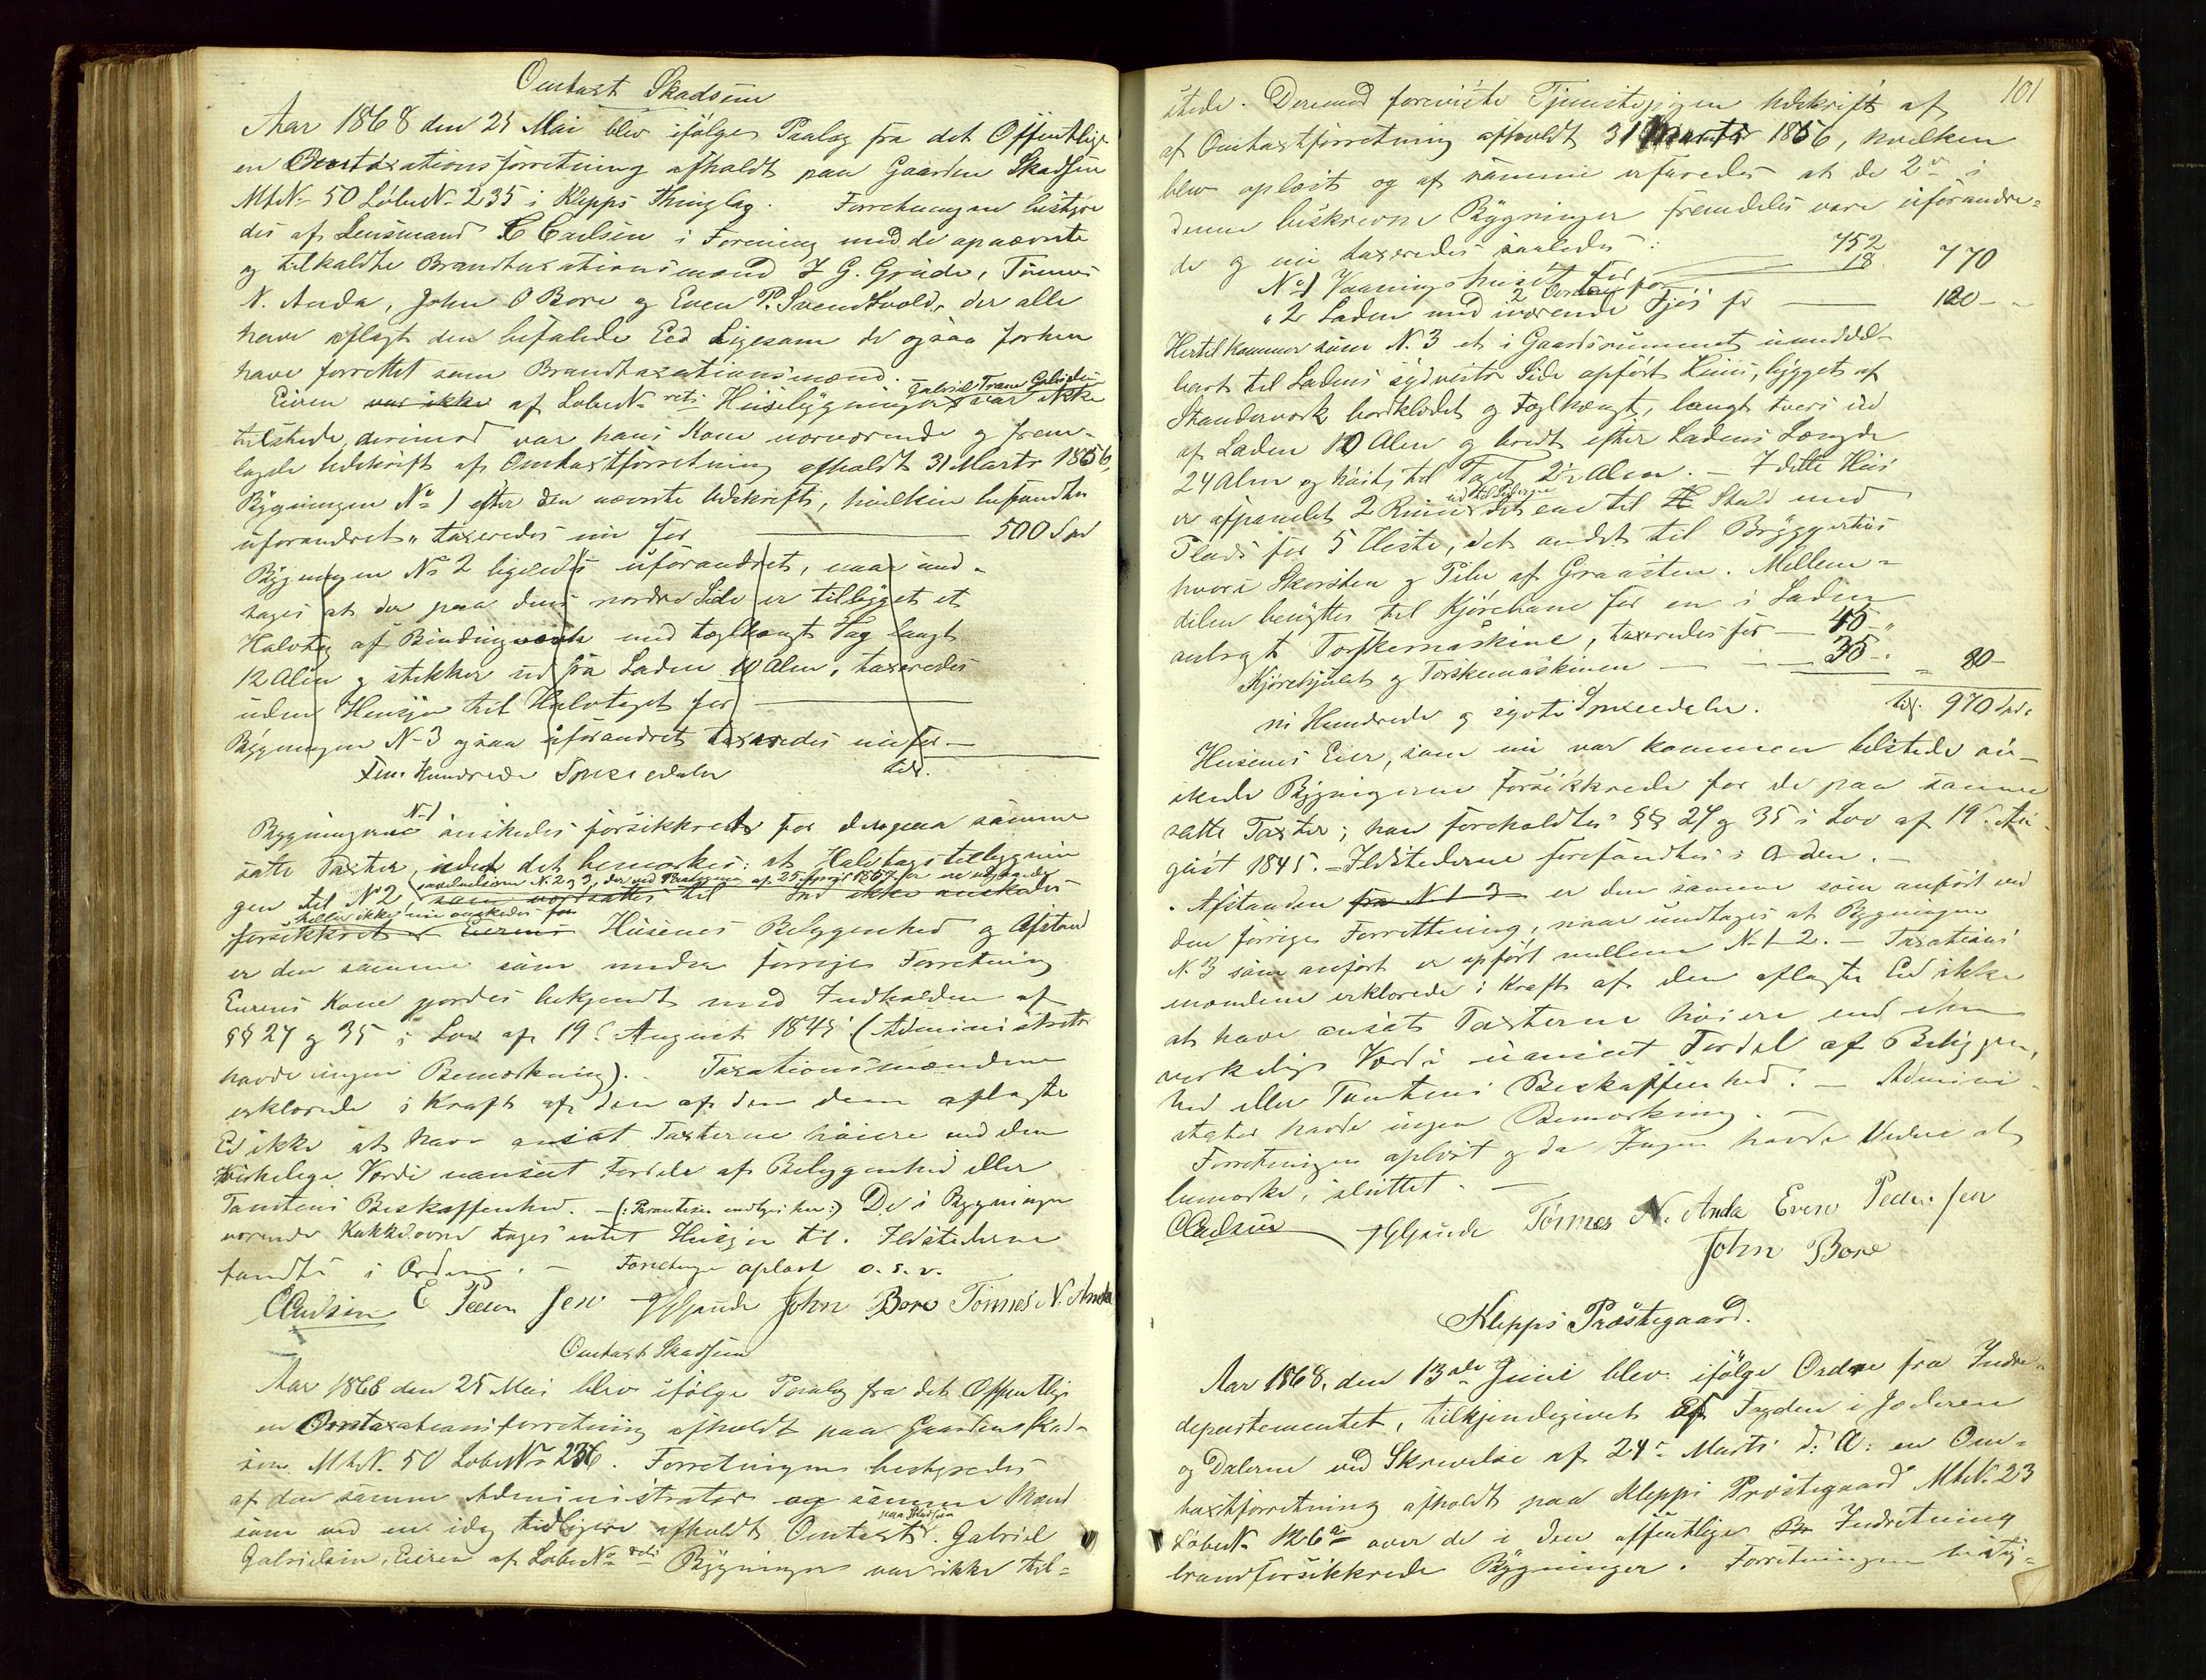 Omtaxt Skadsem
Aar 1868 den 25 Mai blev ifølge Paalæg fra det Offentlige
en Omtaxationsforretning afholdt paa Gaarden Skadsem
Mt№ 50 Løbe№ 235 i Klepps Thinglag. Forretningen bestyre
des af Lensmand C Carlsen i Forening med de opnævnte
og tilkaldte Brandtaxationsmænd J G. Grude, Tønnes
N. Anda, John O Bore og Even P. Svendsvold, der alle
have aflagt den befalede Eed Ligesom de ogsaa forhen
have forrettet som Brandtaxationsmænd.
Eieren var ikke af Løbe№ Husebygninger Gabriel Trane Gabrielsen var ikke
tilstede, derimod var hans Kone nærværende og frem-
lagde Udskrift af Omtaxtforretning afholdt 31 Marts 1856,
Bygningen № 1 efter den nævnte Udskrift, hvilken befandtes
uforandret, taxeredes nu for 500 Spd
Bygningen № 2 ligeledes uforandret, naar und-
tages at der paa dens nordre Side er tilbygget et
Halvtag af Bindingværk med taglhængt Tag langt
12 Alen og stikker ud fra Laden 10 Alen, taxeredes
uden Hensyn til Halvtaget for
Bygningen № 3 ogsaa uforandret taxeredes nu for —
Fem Hundrede Speciedaler tils.
Bygningerne № 1 ønskedes forsikkrede for den paa samme
satte Taxter, idet det bemærkes: at Halvtagstilbygnin
gen til № 2, 
forsikkret Eierens Husenes Beliggenhed og Afstand
er den samme som under forrige Forretning
Eierens Kone gjordes bekjendt med Indholden af
§§ 27 og 35 i Lov af 19. August 1845 (Administrator
havde ingen Bemærkning). Taxationsmændene
erklærede i Kraft af den af dem aflagte
Ed ikke at have ansat Taxterne høiere end den
virkelige Værdi uanseet Fordele af Beliggenhed eller
Tomtens Beskaffenhed. — De i Bygningen
værende Kakkelovne tages intet Hensyn til. Ildstederne
fandtes i Orden. — Forretningen oplæst o.s.v.
CCarlsen E Pedersen JGGrude John Bore Tønnes N. Anda
Omtaxt Skadsem
Aar 1868 den 25 Mai blev ifølge Paalæg fra det Offentlige
en Omtaxationsforretning afholdt paa Gaarden Skad-
sem Mt№ 50 Løbe№ 236. Forretningen bestyredes
af den samme Administrator og samme Mænd
som ved en idag tidligere afholdt Omtaxt paa Skadsem. Gabriel
Gabrielsen, Eieren af Løbe№ Bygninger var ikke til-
101
stede. Derimod foreviste Tjenestepigen Udskrift af
af Omtaxtforretning afholdt 31 Marts 1856, hvilken
blev oplæst og af samme erfaredes at de 2de i
denne beskrevne Bygninger fremdeles vare uforandre-
de og nu taxeredes saaledes:
№ 1 Vaaningshuset for — 752
2 — for — 18. 770
„ 2 Laden med værende Fjøs for — 120 —
Hertil kommer som № 3 et i Gaardsrummet umiddel-
bart til Ladens sydvestre Side opført Huus, bygget af
Standerværk bordklædet og taglhængt, langt tvers ud
af Laden 10 Alen og bredt efter Ladens Længde
24 Alen og høit til Taget 2½ Alen. — I dette Hus
er afpanelet 2 Rum ud til Siderne det ene til Stald med
Plads for 5 Heste, det andet til Bryggerhus
hvori Skorsten og Pibe af Graasten. Mellem-
delen benyttes til Kjørebane for en i Laden
anbragt Tærskemaskine, taxeredes for — 45 „
Kjørehjulet og Tærskemaskinen — 35 — 80 —
ni Hundrede og sytti Speciedaler. tils. 970 Spd
Husenes Eier, som nu var kommen tilstede øn-
skede Bygningerne forsikkrede for de paa samme
satte Taxter; han foreholdtes §§ 27 og 35 i Lov af 19. Au-
gust 1845. — Ildstederne forefandtes i Orden. —
Afstanden fra № 1 3 er den samme som anført ved
den forrige Forretning, naar undtages at Bygningen
№ 3 som anført er opført mellem № 1 – 2. — Taxations
mændene erklærede i Kraft af den aflagte Ed ikke
at have ansat Taxterne høiere end den
verkelige Værdi uanseet Fordel af Beliggen-
hed eller Tomtens Beskaffenhed. — Admini-
strator havde ingen Bemærkning. —
Forretningen oplæst og da Ingen havde Videre at
bemærke, sluttet. —
CCarlsen JGGrude Tønnes N. Anda Even Pedersen
John Bore
Klepps Præstegaard.
Aar 1868, den 13de Juni blev ifølge Ordre fra Indre-
departementet, tilkjendegivet af Fogden i Jæderen
og Dalerne ved Skrivelse af 24de Marts d: A: en Om-
taxtforretning afholdt paa Klepps Præstegaard Mt№ 23
Løbe№ 126a over de i den offentlige Br Indretning
brandforsikkrede Bygninger. Forretningen besty-